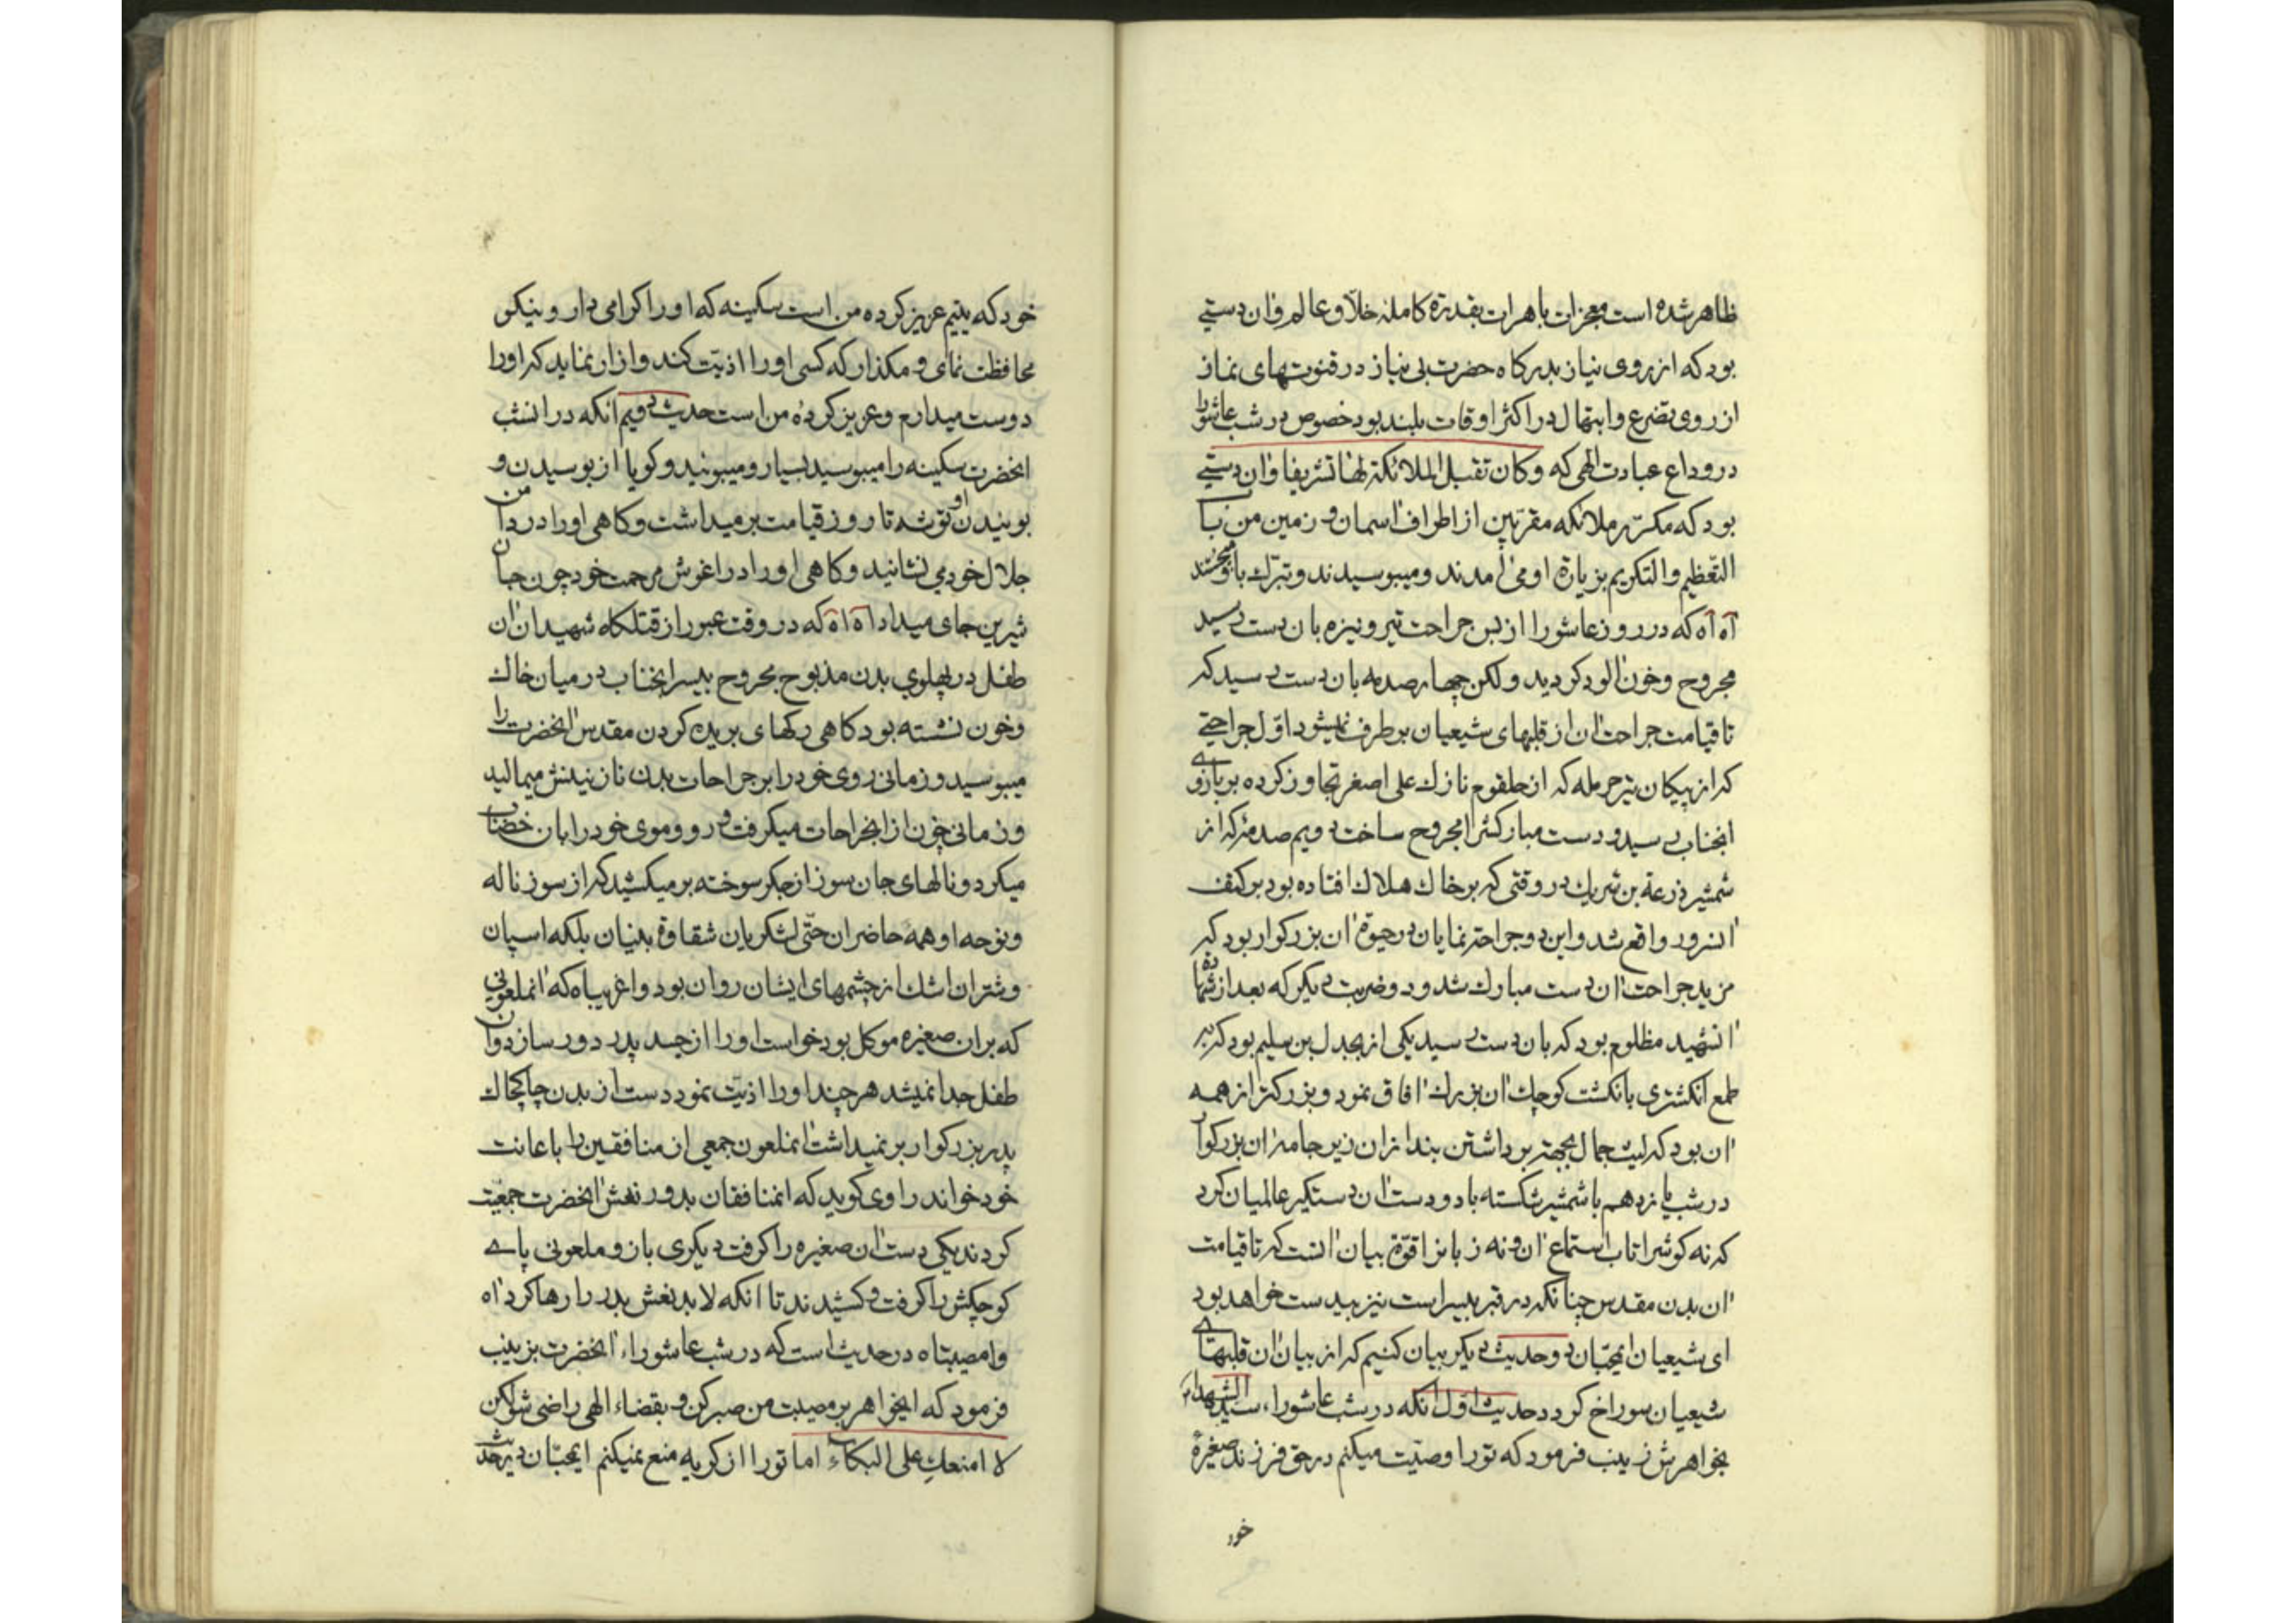 ظاهر شده است معجزات باهرات بقدرة كاملهٔ خلّاق عالم وان دستی
بود كه از روی نیاز بدركاه حضرت بی نیاز در قنوتهای نماز
از روی تضرع وابتهال در اكثر اوقات بلند بود خصوص در شب عاشورا
در وداع عبادت الهی كه وكان تقبیل الملائكة لها تشریفا وان دستی
بود كه مكرّر ملائكه مقربین از اطراف اسمان و زمین من باب
التّعظیم والتكریم بزیارة او می امدند ومیبوسیدند وتبرّك باو میجستند
آه آه كه در روز عاشورا از بس جراحت تیر ونیزه بان دست رسید
مجروح وخون الود كردید ولكن چهار صدمه بان دست رسید كه
تا قیامت جراحت ان از قلبهای شیعیان برطرف نمیشود اوّل جراحتی
كه از پیكان تیر حرمله كه از حلقوم نازك علی اصغر تجاوز كرده بر بازوی
انجناب رسید ودست مباركش را مجروح ساخت دویم صدمهٔ كه از
شمشیر زرعة بن شریك در وقتی كه بر خاك هلاك افتاده بود بر كتف
انسرور واقع شد واین دو جراحت نمایان در حیوة ان بزركوار بود كه
مزید جراحت ان دست مبارك شد ودو ضربت دیكر كه بعد از شهادة
انشهید مظلوم بود كه بان دست رسید یكی از بجدل بن سلیم بود كه بر
طمع انكشتری با انكشت كوچك ان بزرك افاق نمود وبزركتر از همه
ان بود كه لیث جمال بجهة برداشتن بند از ان زیر جامه ان بزركوار
در شب یازدهم با شمشیر شكسته با دو دست ان دستكیر عالمیان كرد
كه نه كوش را تاب استماع ان و نه زبانرا قوّة بیان انست كه تا قیامت
ان بدن مقدس چنانكه در قبر بیسر است نیز بیدست خواهد بود
ای شیعیان ایمحبّان دو حدیث دیكر بیان كنیم كه از بیان ان قلبهای
شیعیان سوراخ كردد حدیث اول انكه در شب عاشوراء سید الشهداء
بخواهرش زینب فرمود كه تو را وصیّت میكنم در حق فرزند صغیرهٔ
خود
خود كه یتیم عزیز كرده من است سكینه كه او را كرامی دار و نیكو
محافظت نمای و مكذار كه كسی او را اذیّت كند وازار نماید كه او را
دوست میدارم وعزیز كرده من است حدیث دویم انكه در انشب
انحضرت سكینه را میبوسید بسیار ومیبوئید وكویا از بوسیدن و
بوئیدن او توشه تا روز قیامت برمیداشت وكاهی او را در دامن
جلال خود می نشانید وكاهی او را در اغوش مرحمت خود چون جان
شیرین جای میداد آه آه كه در وقت عبور از قتلكاه شهیدان ان
طفل در پهلوی بدن مذبوح مجروح بیسر انجناب در میان خاك
وخون نشسته بود كاهی ركهای بریده كردن مقدس انحضرت را
میبوسید وزمانی روی خود را بر جراحات بدن نازنینش میمالید
وزمانی خون از انجراحات میكرفت و رو وموی خود را بان خضاب
میكرد ونالهای جان سوز از جكر سوخته بر میكشید كه از سوز ناله
ونوحه او همه حاضران حتّی لشكریان شقاوة بنیان بلكه اسپان
وشتران اشك از چشمهای ایشان روان بود واغریباه كه انملعونی
كه بران صغیره موكل بود خواست او را از جسد پدر دور سازد وان
طفل جدا نمیشد هر چند او را اذیّت نمود دست از بدن چاكچاك
پدر بزركوار بر نمیداشت انملعون جمعی از منافقین را باعانت
خود خواند راوی كوید كه انمنافقان بدور نعش انحضرت جمعیّت
كردند یكی دست ان صغیره را كرفت دیكری بازو وملعونی پای
كوچكش را كرفت و كشیدند تا انكه لابد نعش پدر را رها كرد اه
وامصیبتاه در حدیث است كه در شب عاشوراء انحضرت بزینب
فرمود كه ایخواهر بر مصیبت من صبر كن و بقضاء الهی راضی شو لكن
لا امنعك علی البكاء اما تو را از كریه منع نمیكنم ایمحبّان در حدیث